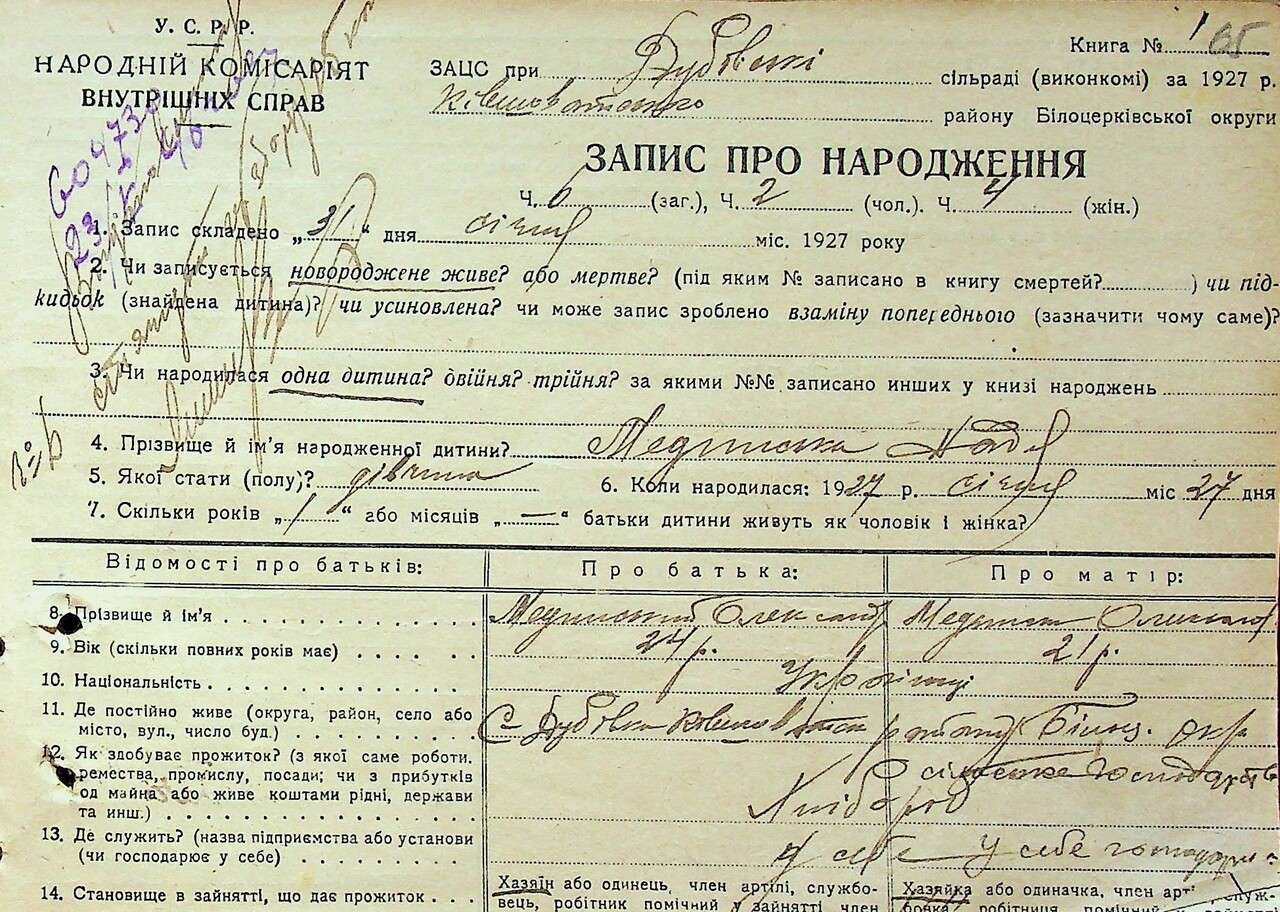 У. С. Р. Р.
НАРОДНІЙ КОМІСАРІЯТ
ВНУТРІШНІХ СПРАВ
Книга № 1
ЗАЦС при Дубовській сільраді (виконкомі) за 1927 р.
району Білоцерківської округи
ЗАПИС ПРО НАРОДЖЕННЯ
Ч. 6 (заг.), Ч. 2 (чол.). Ч. 4 (жін.)
1. Запис складено „31“ дня січня міс. 1927 року
2. Чи записується новороджене живе? або мертве? (під яким № записано в книгу смертей? ) чи під-
кидьок (знайдена дитина)? чи усиновлена? чи може запис зроблено взаміну попереднього (зазначити чому саме)?
3. Чи народилася одна дитина? двійня? трійня? за якими №№ записано инших у книзі народжень
4. Прізвище й ім’я народженної дитини? Мединська Надія
5. Якої стати (полу)? дівчина 6. Коли народилася: 1927 р. січня міс 27 дня
7. Скільки років „1“ або місяців „—“ батьки дитини живуть як чоловік і жінка?
Відомості про батьків: Про батька: Про матір:
8. Прізвище й ім’я Мединський Олександр Мединська
9. Вік (скільки повних років має) 24 р. 21 р.
10. Національність Українці
11. Де постійно живе (округа, район, село або
місто, вул., число буд.) С. Дубовка Білоц. окр.
12. Як здобуває прожиток? (з якої саме роботи.
ремества, промислу, посади; чи з прибутків
од майна або живе коштами рідні, держави
та инш.) Хлібороб сільське господарство
13. Де служить? (назва підприємства або установи
(чи господарює у себе) у себе у себе
14. Становище в зайнятті, що дає прожиток
Хазяїн або одинець, член артілі, службо-
вець, робітник помічний у зайнятті член
Хазяйка або одиначка, член арт служ-
бовка робітниця помічний